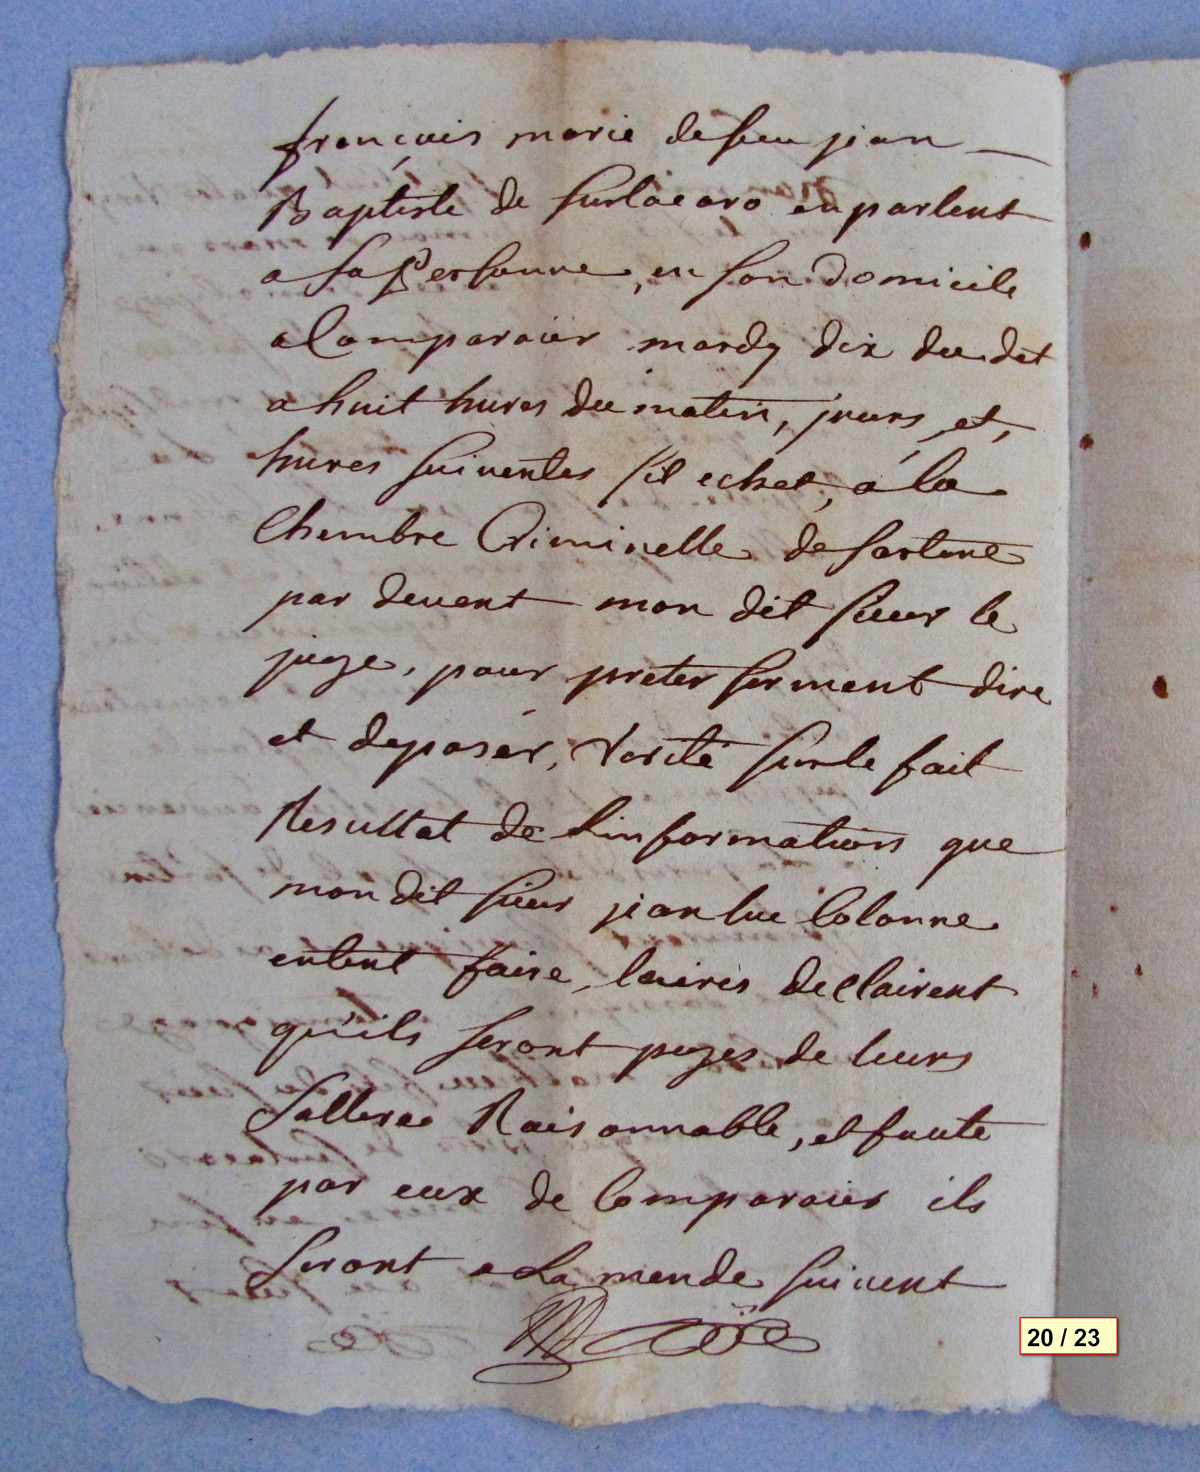 françois marie de feu jean
Baptiste de surlacaro en parlent
a sa Personne, en son domicile
a Comparoier mardy dix du dit
a huit hures du matin, jours, et,
hures suiventes s'il echet, a la
Chembre Criminelle de sartene
par devent mon dit sieur le
juge, pour preter serment dire
et deposér, verité sur le fait
Resultat de l'information que
mon dit sieur jean luc Colonne
entent faire, leures declairent
qu'ils seront payes de leurs
salleree Raisonnable, et faute
par eux de Comparoier ils
seront a la mende suivent
20 / 23